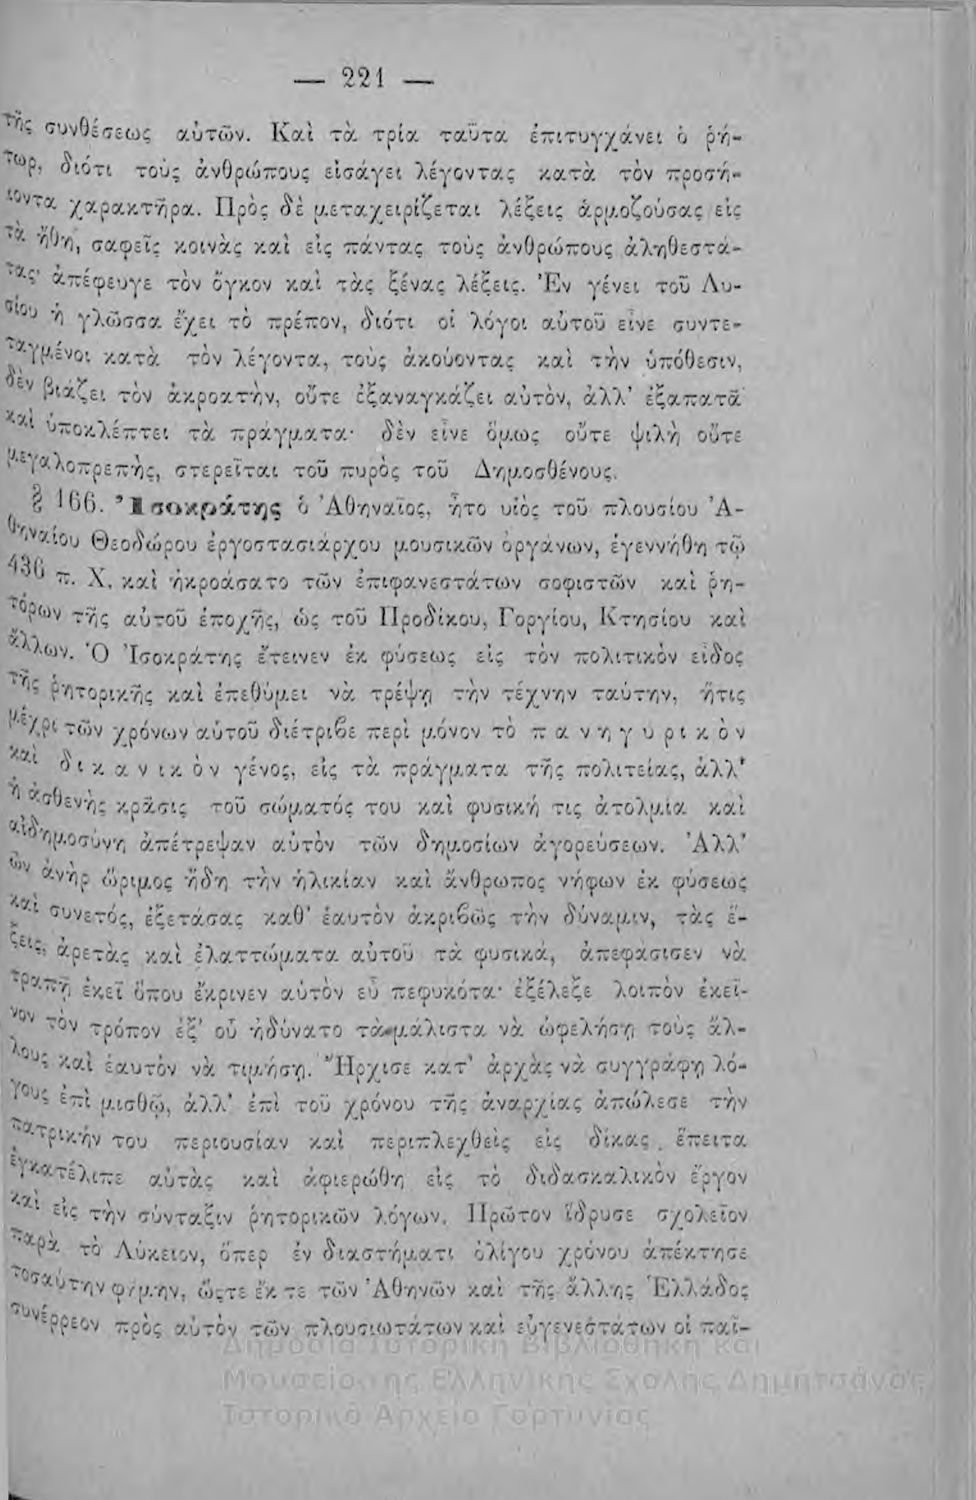 — 221 —
τῆς συνθέσεως αὐτῶν. Καὶ τὰ τρία ταῦτα ἐπιτυγχάνει ὁ ῥή-
τωρ, διότι τοὺς ἀνθρώπους εἰσάγει λέγοντας κατὰ τὸν προσή-
κοντα χαρακτῆρα. Πρὸς δὲ μεταχειρίζεται λέξεις ἁρμοζούσας εἰς
τὰ ἤθη, σαφεῖς κοινὰς καὶ εἰς πάντας τοὺς ἀνθρώπους ἀληθεστά-
τας· ἀπέφευγε τὸν ὄγκον καὶ τὰς ξένας λέξεις. Ἐν γένει τοῦ Λυ-
σίου ἡ γλῶσσα ἔχει τὸ πρέπον, διότι οἱ λόγοι αὐτοῦ εἶνε συντε-
ταγμένοι κατὰ τὸν λέγοντα, τοὺς ἀκούοντας καὶ τὴν ὑπόθεσιν,
δὲν βιάζει τὸν ἀκροατὴν, οὔτε ἐξαναγκάζει αὐτὸν, ἀλλ' ἐξαπατᾶ
καὶ ὑποκλέπτει τὰ πράγματα· δὲν εἶνε ὅμως οὔτε ψιλὴ οὔτε
μεγαλοπρεπὴς, στερεῖται τοῦ πυρὸς τοῦ Δημοσθένους.
§ 166. Ἰσοκράτης ὁ Ἀθηναῖος, ἦτο υἱὸς τοῦ πλουσίου Ἀ-
θηναίου Θεοδώρου ἐργοστασιάρχου μουσικῶν ὀργάνων, ἐγεννήθη τῷ
436 π. Χ. καὶ ἠκροάσατο τῶν ἐπιφανεστάτων σοφιστῶν καὶ ῥη-
τόρων τῆς αὐτοῦ ἐποχῆς, ὡς τοῦ Προδίκου, Γοργίου, Κτησίου καὶ
ἄλλων. Ὁ Ἰσοκράτης ἔτεινεν ἐκ φύσεως εἰς τὸν πολιτικὸν εἶδος
τῆς ῥητορικῆς καὶ ἐπεθύμει νὰ τρέψῃ τὴν τέχνην ταύτην, ἥτις
μέχρι τῶν χρόνων αὐτοῦ διέτριβε περὶ μόνον τὸ πανηγυρικὸν
καὶ δικανικὸν γένος, εἰς τὰ πράγματα τῆς πολιτείας, ἀλλ'
ἡ ἀσθενὴς κρᾶσις τοῦ σώματός του καὶ φυσική τις ἀτολμία καὶ
αἰδημοσύνη ἀπέτρεψαν αὐτὸν τῶν δημοσίων ἀγορεύσεων. Ἀλλ'
ὢν ἀνὴρ ὥριμος ἤδη τὴν ἡλικίαν καὶ ἄνθρωπος νήφων ἐκ φύσεως
καὶ συνετός, ἐξετάσας καθ' ἑαυτὸν ἀκριβῶς τὴν δύναμιν, τὰς ἕ-
ξεις, ἀρετὰς καὶ ἐλαττώματα αὐτοῦ τὰ φυσικά, ἀπεφάσισεν νὰ
τραπῇ ἐκεῖ ὅπου ἔκρινεν αὐτὸν εὖ πεφυκότα· ἐξέλεξε λοιπὸν ἐκεῖ-
νον τὸν τρόπον ἐξ' οὗ ἠδύνατο τὰ μάλιστα νὰ ὠφελήσῃ τοὺς ἄλ-
λους καὶ ἑαυτὸν νὰ τιμήσῃ. Ἤρχισε κατ' ἀρχὰς νὰ συγγράφῃ λό-
γους ἐπὶ μισθῷ, ἀλλ' ἐπὶ τοῦ χρόνου τῆς ἀναρχίας ἀπώλεσε τὴν
πατρικήν του περιουσίαν καὶ περιπλεχθεὶς εἰς δίκας, ἔπειτα
ἐγκατέλιπε αὐτὰς καὶ ἀφιερώθη εἰς τὸ διδασκαλικὸν ἔργον
καὶ εἰς τὴν σύνταξιν ῥητορικῶν λόγων. Πρῶτον ἵδρυσε σχολεῖον
παρὰ τὸ Λύκειον, ὅπερ ἐν διαστήματι ὀλίγου χρόνου ἀπέκτησε
τοσαύτην φήμην, ὥςτε ἔκ τε τῶν Ἀθηνῶν καὶ τῆς ἄλλης Ἑλλάδος
συνέρρεον πρὸς αὐτὸν τῶν πλουσιωτάτων καὶ εὐγενεστάτων οἱ παῖ-
Δημόσια Ιστορική Βιβλιοθήκη και
Μουσείο της Ελληνικής Σχολής Δημητσάνας
Ιστορικό Αρχείο Γορτυνίας